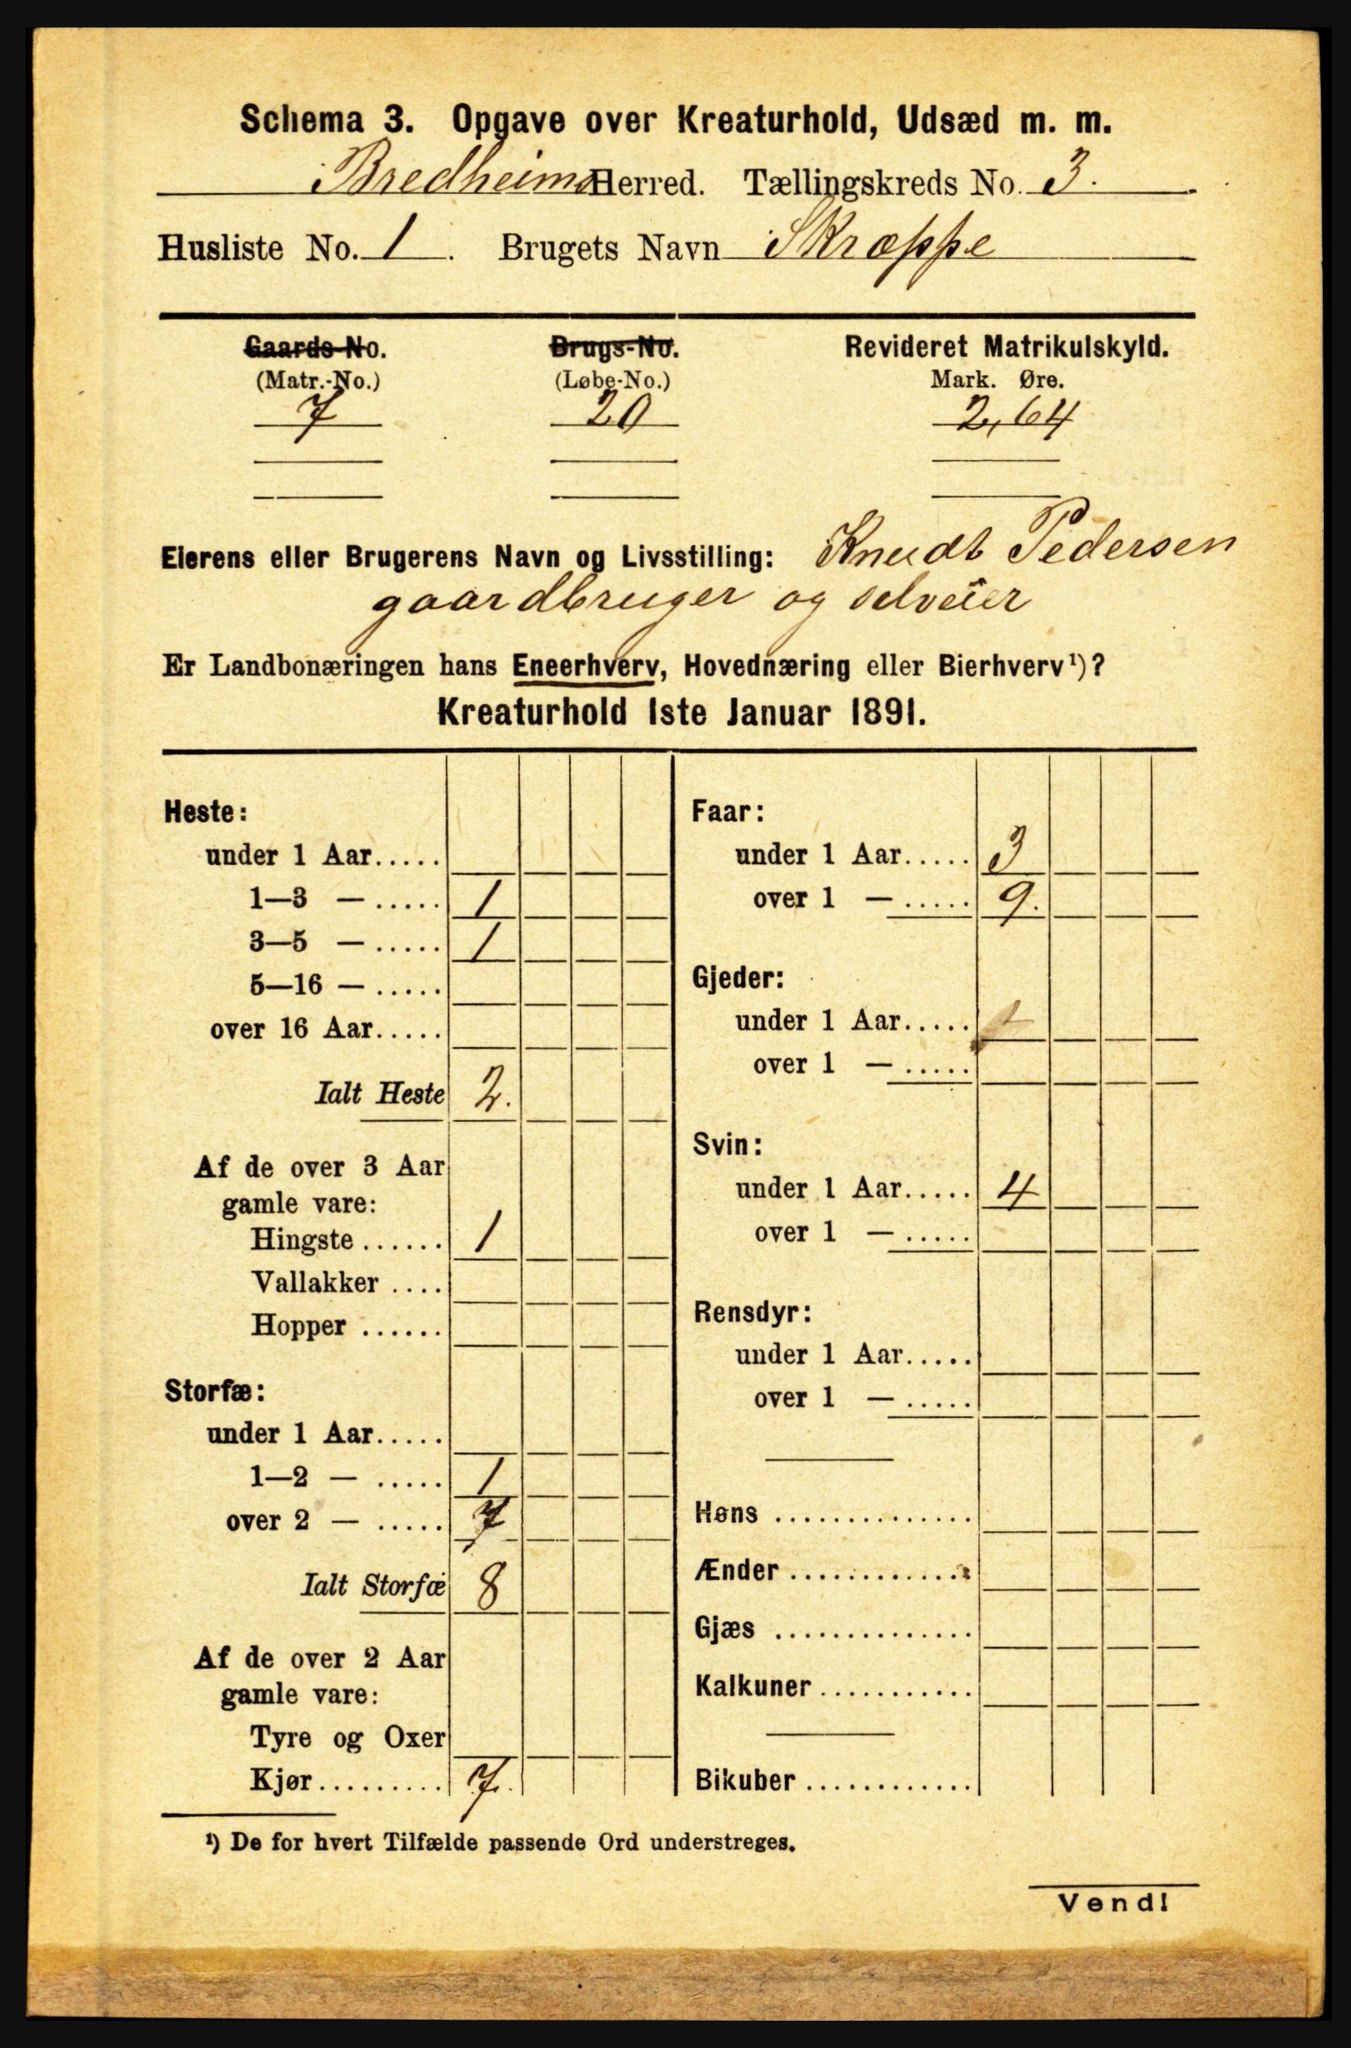 Schema 3. Opgave over Kreaturhold, Udsæd m. m.
Bredheims Herred. Tællingskreds No. 3.
Husliste No. 1. Brugets Navn Skræppe
Gaards-No. Brugs-No. Revideret Matrikulskyld.
(Matr.-No.) (Løbe-No.) Mark. Øre.
7 20 2,64
Eierens eller Brugerens Navn og Livsstilling: Knudt Pedersen
gaardbruger og selveier
Er Landbonæringen hans Eneerhverv, Hovednæring eller Bierhverv¹)?
Kreaturhold 1ste Januar 1891.
Heste:
under 1 Aar.....
1—3 — ..... 1
3—5 — ..... 1
5—16 — .....
over 16 Aar.....
Ialt Heste 2.
Af de over 3 Aar
gamle vare:
Hingste ...... 1
Vallakker ....
Hopper ......
Storfæ:
under 1 Aar.....
1—2 — ..... 1
over 2 — ..... 7
Ialt Storfæ 8
Af de over 2 Aar
gamle vare:
Tyre og Oxer
Kjør......... 7.
Faar:
under 1 Aar..... 3
over 1 — ..... 9.
Gjeder:
under 1 Aar.....
over 1 — .....
Svin:
under 1 Aar..... 4
over 1 — .....
Rensdyr:
under 1 Aar.....
over 1 — .....
Høns ..............
Ænder .............
Gjæs ..............
Kalkuner...........
Bikuber ............
¹) De for hvert Tilfælde passende Ord understreges.
Vend!